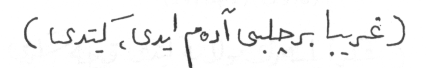 (غریبا بر چلبی آدم ایدی، کیتدی)